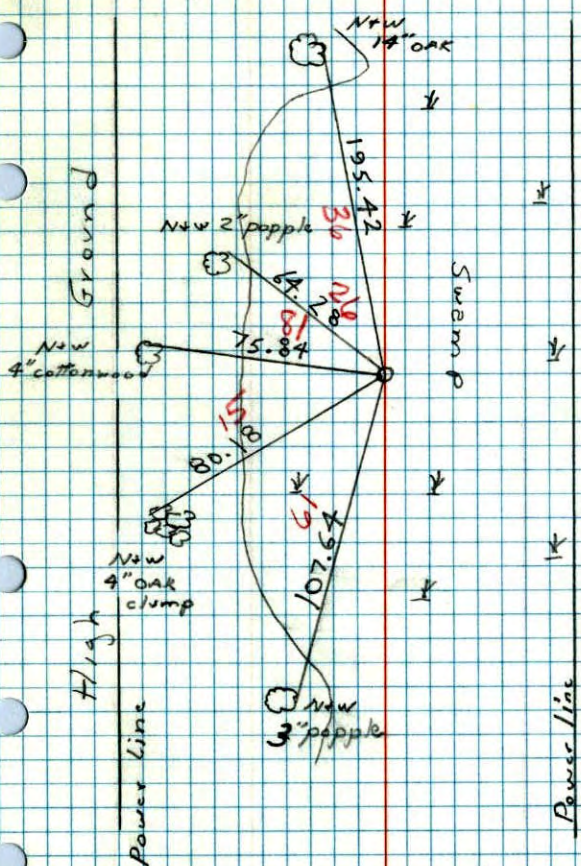 N+W
14" OAK
195.42
36
N+W 2" popple
64.28
26
18
75.84
N+W
4" cottonwood
80.18
15
N+W
4" OAK
clump
107.64
13
N+W
3" popple
High Ground
Swamp
Power Line
Power line